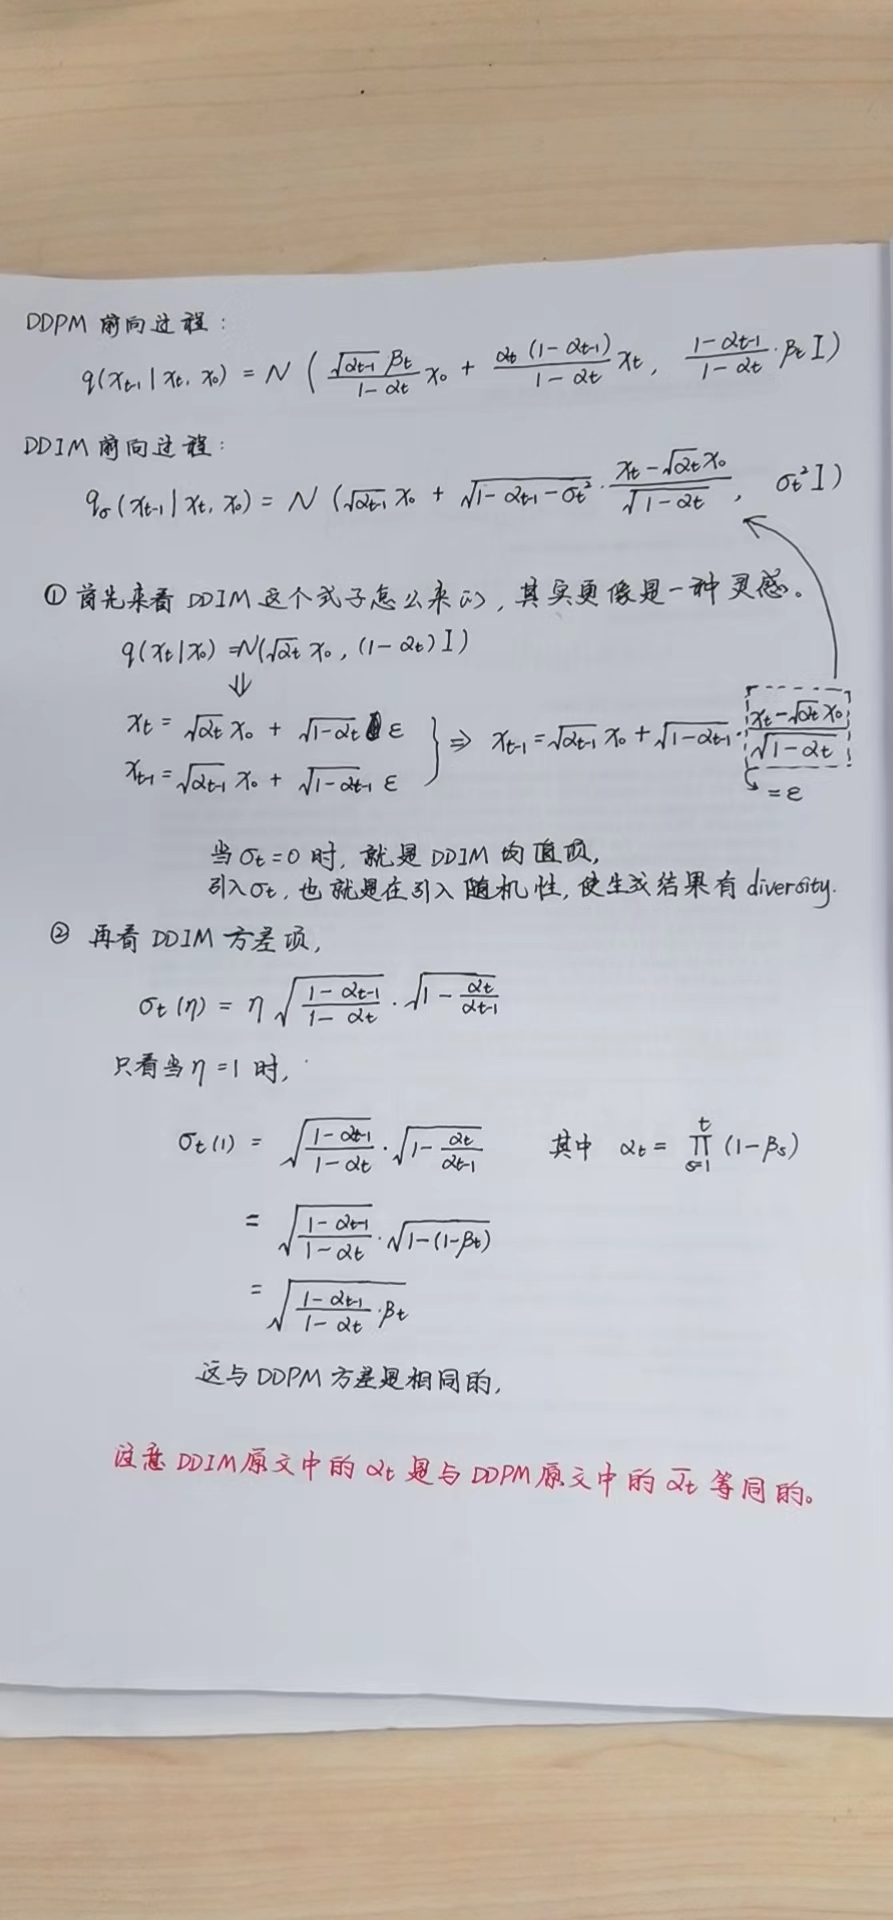 DDPM 前向过程:
q(x_{t-1} | x_t, x_0) = N ( \frac{\sqrt{α_{t-1}} β_t}{1-α_t} x_0 + \frac{α_t (1-α_{t-1})}{1-α_t} x_t, \frac{1-α_{t-1}}{1-α_t} · β_t I)
DDIM 前向过程:
q_σ (x_{t-1} | x_t, x_0) = N (\sqrt{α_{t-1}} x_0 + \sqrt{1-α_{t-1}-σ_t^2} · \frac{x_t - \sqrt{α_t} x_0}{\sqrt{1-α_t}}, σ_t^2 I)
① 首先来看 DDIM 这个式子怎么来的, 其实更像是一种灵感。
q(x_t | x_0) = N(\sqrt{α_t} x_0, (1-α_t) I)
⇓
x_t = \sqrt{α_t} x_0 + \sqrt{1-α_t} ε
x_{t-1} = \sqrt{α_{t-1}} x_0 + \sqrt{1-α_{t-1}} ε
} ⇒ x_{t-1} = \sqrt{α_{t-1}} x_0 + \sqrt{1-α_{t-1}} · \frac{x_t - \sqrt{α_t} x_0}{\sqrt{1-α_t}}
= ε
当 σ_t = 0 时, 就是 DDIM 均值项,
引入 σ_t, 也就是在引入随机性, 使生成结果有 diversity.
② 再看 DDIM 方差项,
σ_t (η) = η \sqrt{\frac{1-α_{t-1}}{1-α_t}} · \sqrt{1 - \frac{α_t}{α_{t-1}}}
只看当 η = 1 时,
σ_t (1) = \sqrt{\frac{1-α_{t-1}}{1-α_t}} · \sqrt{1 - \frac{α_t}{α_{t-1}}} 其中 α_t = \prod_{s=1}^{t} (1-β_s)
= \sqrt{\frac{1-α_{t-1}}{1-α_t}} · \sqrt{1-(1-β_t)}
= \sqrt{\frac{1-α_{t-1}}{1-α_t} · β_t}
这与 DDPM 方差是相同的,
注意 DDIM 原文中的 α_t 是与 DDPM 原文中的 \bar{α}_t 等同的。